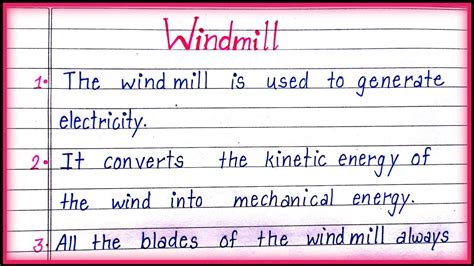 Windmill
1. The wind mill is used to generate
electricity.
2. It converts the kinetic energy of
the wind into mechanical energy.
3. All the blades of the windmill always